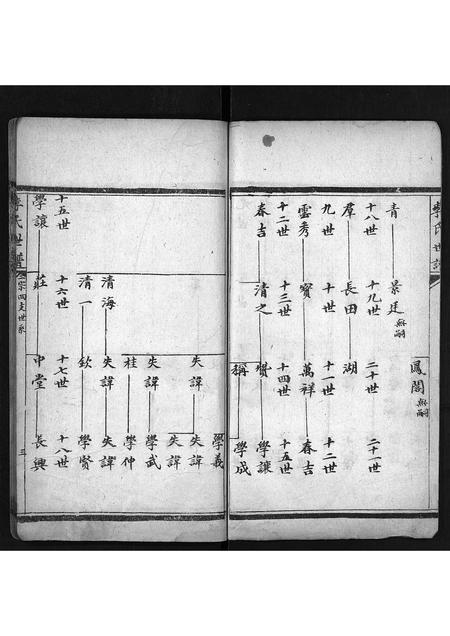 李氏世譜
鳳閣 無嗣
青 景廷 無嗣
十八世 十九世 二十世 二十一世
群 長田 湖
九世 十世 十一世 十二世
雲秀 寶 萬祥 春吉
十二世 十三世 十四世 十五世
春吉 清之 學讓
稱 學成
學義
失諱 失諱
失諱
失諱 學武
桂 學仲
清海 失諱 失諱
清一 欽 學賢
十五世 十六世 十七世 十八世
學讓 莊 中堂 長興
李氏世譜 四支世系 三